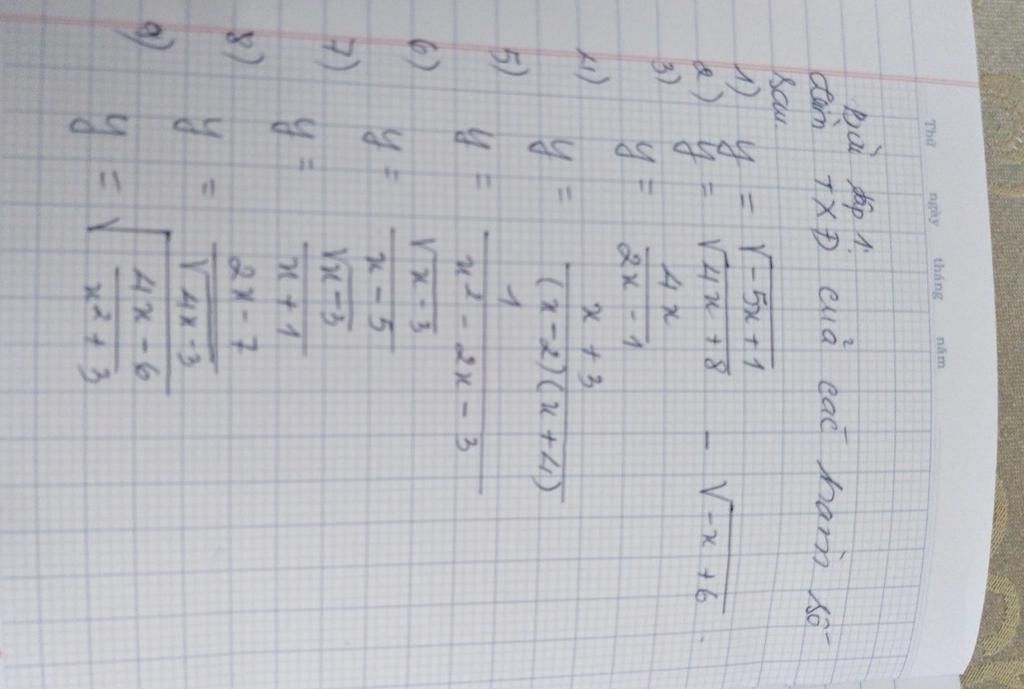 Thứ ngày tháng năm
Bài tập 1:
Tìm TXĐ của các hàm số
sau.
1) y = √(-5x+1)
2) y = √(4x+8) - √(-x+6).
3) y = 4x / (2x-1)
4) y = (x+3) / ((x-2)(x+4))
5) y = 1 / (x²-2x-3)
6) y = √(x-3) / (x-5)
7) y = √(x-3) / (x+1)
8) y = (2x-7) / √(4x-3)
9) y = √((4x-6) / (x²+3))